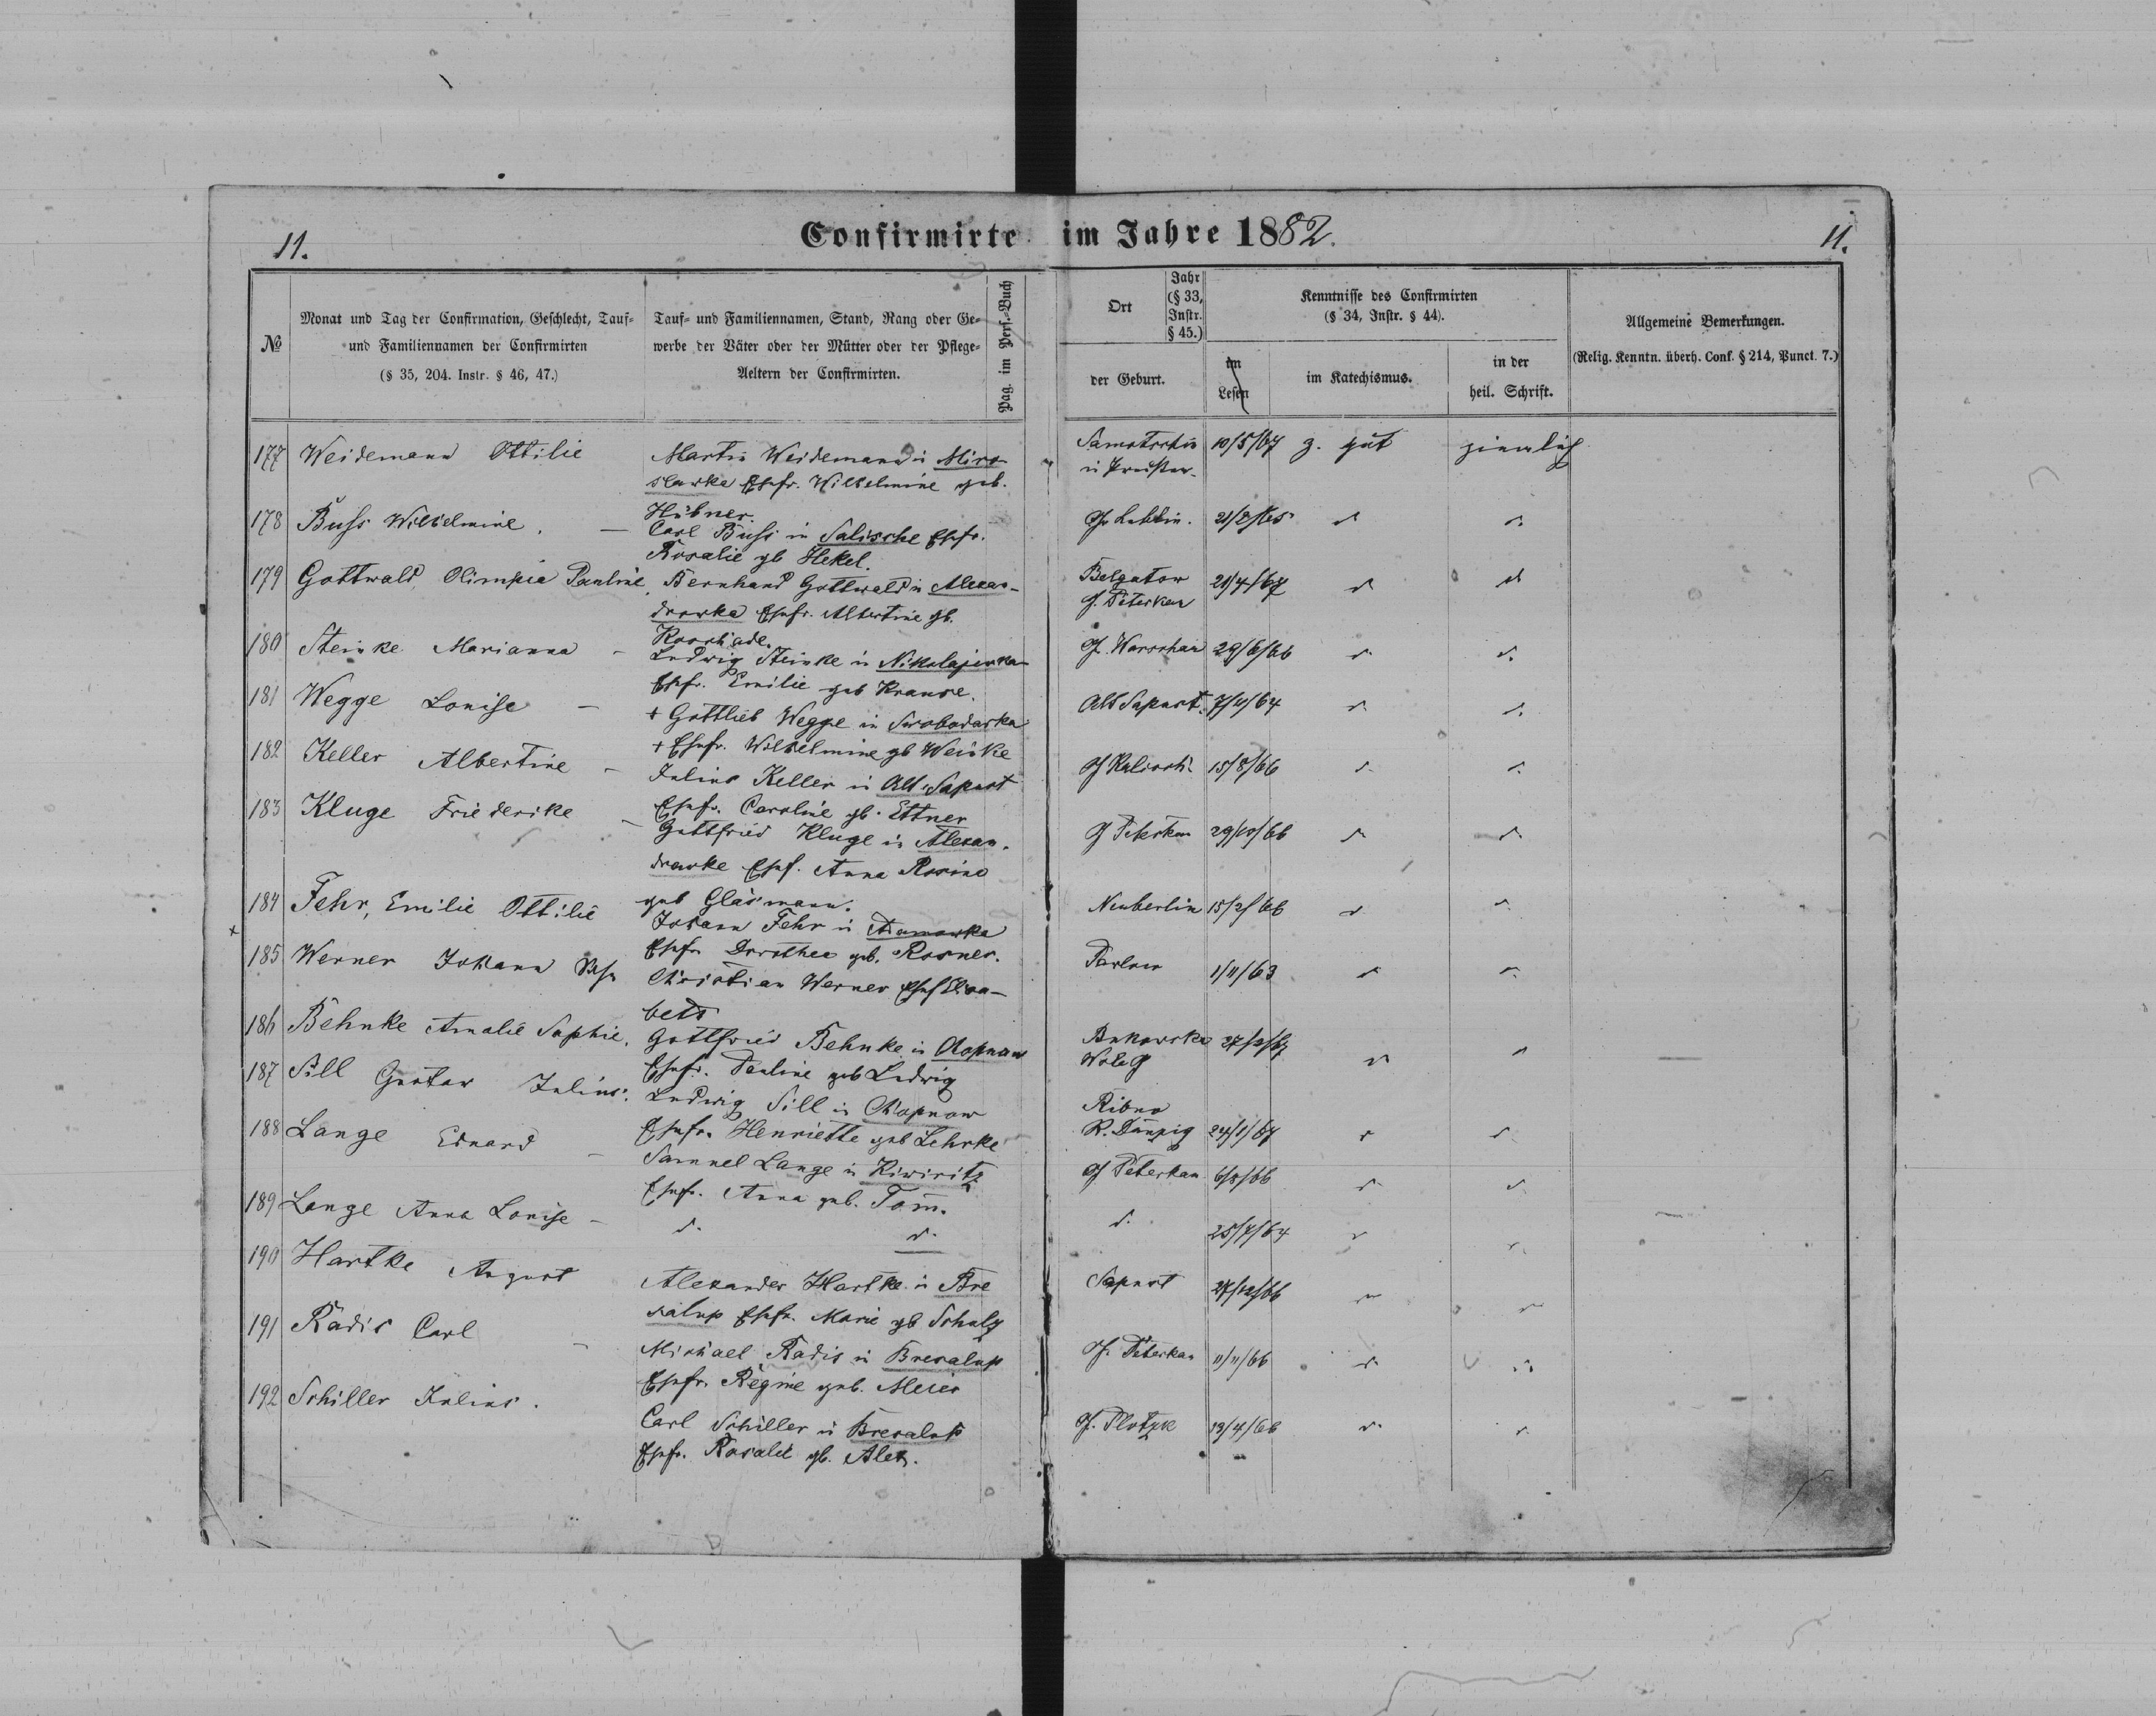 11.
Confirmirte im Jahre 1882.
11.
№
Monat und Tag der Confirmation, Geschlecht, Tauf-
und Familiennamen der Confirmirten
(§ 35, 204. Instr. § 46, 47.)
Tauf- und Familiennamen, Stand, Rang oder Ge-
werbe der Väter oder der Mütter oder der Pflege-
Aeltern der Confirmirten.
Pag. im Pers.-Buch
Ort
Jahr
(§ 33,
Instr.
§ 45.)
der Geburt.
Kenntnisse des Confirmirten
(§ 34, Instr. § 44).
im
Lesen
im Katechismus.
in der
heil. Schrift.
Allgemeine Bemerkungen.
(Relig. Kenntn. überh. Conf. § 214, Punct. 7.)
177 Weidemann Ottilie
Martin Weidemann in Miro
slawka Ehefr. Wilhelmine geb.
Hübner.
10/5/67 z. gut ziemlich
178 Buss Wilhelmine. –
Carl Buss in Salische Ehefr.
Rosalie gb Hekel.
G. Lublin. d. d.
179 Gottwald Olimpia Pauline,
Bernhand Gottwald in Alexan-
drowka Ehefr. Albertine gb.
Belgatow
G. Peterkau 21/4/67 d d
180 Steinke Marianna –
Ludwig Steinke in Nikolajewka
Ehefr. Emilie geb Krause.
G. Warschau 29/6/66 d. d.
181 Wegge Louise –
+ Gottlieb Wegge in Swobodarka
+ Ehefr. Wilhelmine gb Weinke
Alt Sapust. d. d.
182 Keller Albertine –
Julius Keller in Alt-Sapust
Ehefr. Caroline gb. Ettner
G Kalisch. 15/8/66 d. d.
183 Kluge Friederike –
Gottfried Kluge in Alexan-
drowke Ehef. Anna Rosine
geb Gläsmann.
G Peterkau 29/10/66 d. d.
184 Fehr, Emilie Ottilie
Johann Fehr in Adamowka
Ehefr Dorothea geb. Rosner.
Neuberlin 15/2/66 d d.
+
185 Werner Johann
Christian Werner Ehef Elisa-
beth
1/11/63 d d.
186 Behnke Amalie Sophie.
Gottfried Behnke in Chopnow
Ehefr. Pauline geb Ludwig
Bukowska
Wola G d d
187 Sill Gustav Julius.
Ludwig Sill in Chopnow
Ehefr. Henriette geb Lehrke
Ribno
K. Danzig 24/1/67 d d.
188 Lange Eduard –
Samuel Lange in Kiwiritz
Ehefr. Anna geb. Tom̄.
G Peterkau 6/8/66 d. d.
189 Lange Anna Louise –
d. d.
d. 25/7/64 d d.
190 Hartke August
Alexander Hartke in Bre
salup Ehefr. Marie gb Schulz
Sapust 27/12/66 d d
191 Radis Carl –
Michael Radis in Bresalup
Ehefr. Regine geb. Meier
G. Peterkau 11/11/66 d. d.
192 Schiller Julius.
Carl Schiller in Bresalup
Ehefr. Rosalie gb.
G. Plotzk 13/4/66 d. d.